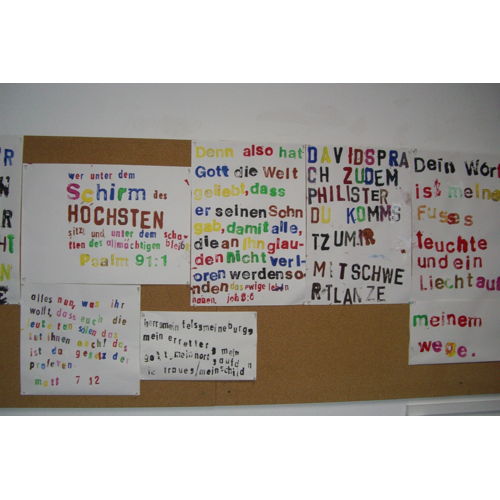 wer unter dem
Schirm des
HÖCHSTEN
sitzt und unter dem scha-
tten des allmächtigen bleibt
Psalm 91:1
Denn also hat
Gott die Welt
geliebt, dass
er seinen Sohn
gab, damit alle,
die an ihn glau-
den nicht verl-
oren werden so-
nden das ewige leben
haben. joh 3:6
DAVID SPRA
CH ZU DEM
PHILISTER
DU KOMMS
T ZU MIR
MIT SCHWE
RT LANZE
Dein Wort
ist meine
Fuses
leuchte
und ein
Liecht auf
meinem
wege.
alles nun, was ihr
wollt, dass euch die
leute tun
ihnen auch! das
ist da gesetz der
profeten.
matt 7 12
herr mein fels meine burg,
mein erretter,
mein
gott, mein hort
traue, / mein schild